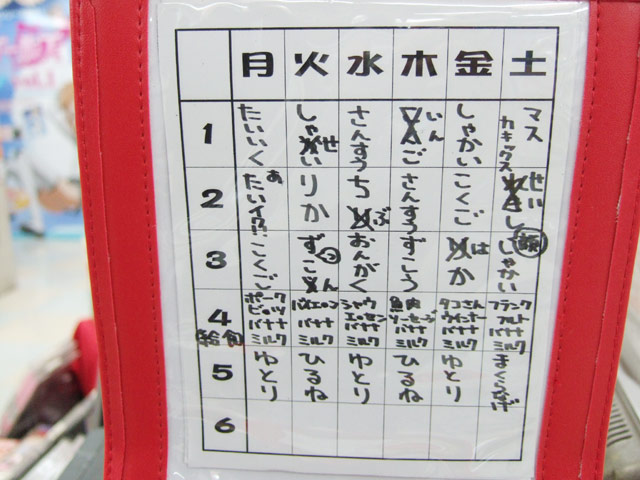 月 火 水 木 金 土
1 たいいく しゃかい せ さんすう ご いん しゃかい マス カキックス
2 たい あ イク!! りか ち ぶ さんすう こくご し せい
3 こくご ずこ おんがく ずこう か は しゃかい
4 給食 ポーク ビッツ バナナ ミルク バイエルン バナナ ミルク シャウ エッセン バナナ ミルク 魚肉 ソーセージ バナナ ミルク タコさん ウインナー バナナ ミルク フランク フルト バナナ ミルク
5 ゆとり ひるね ゆとり ひるね ゆとり まくらなげ
6